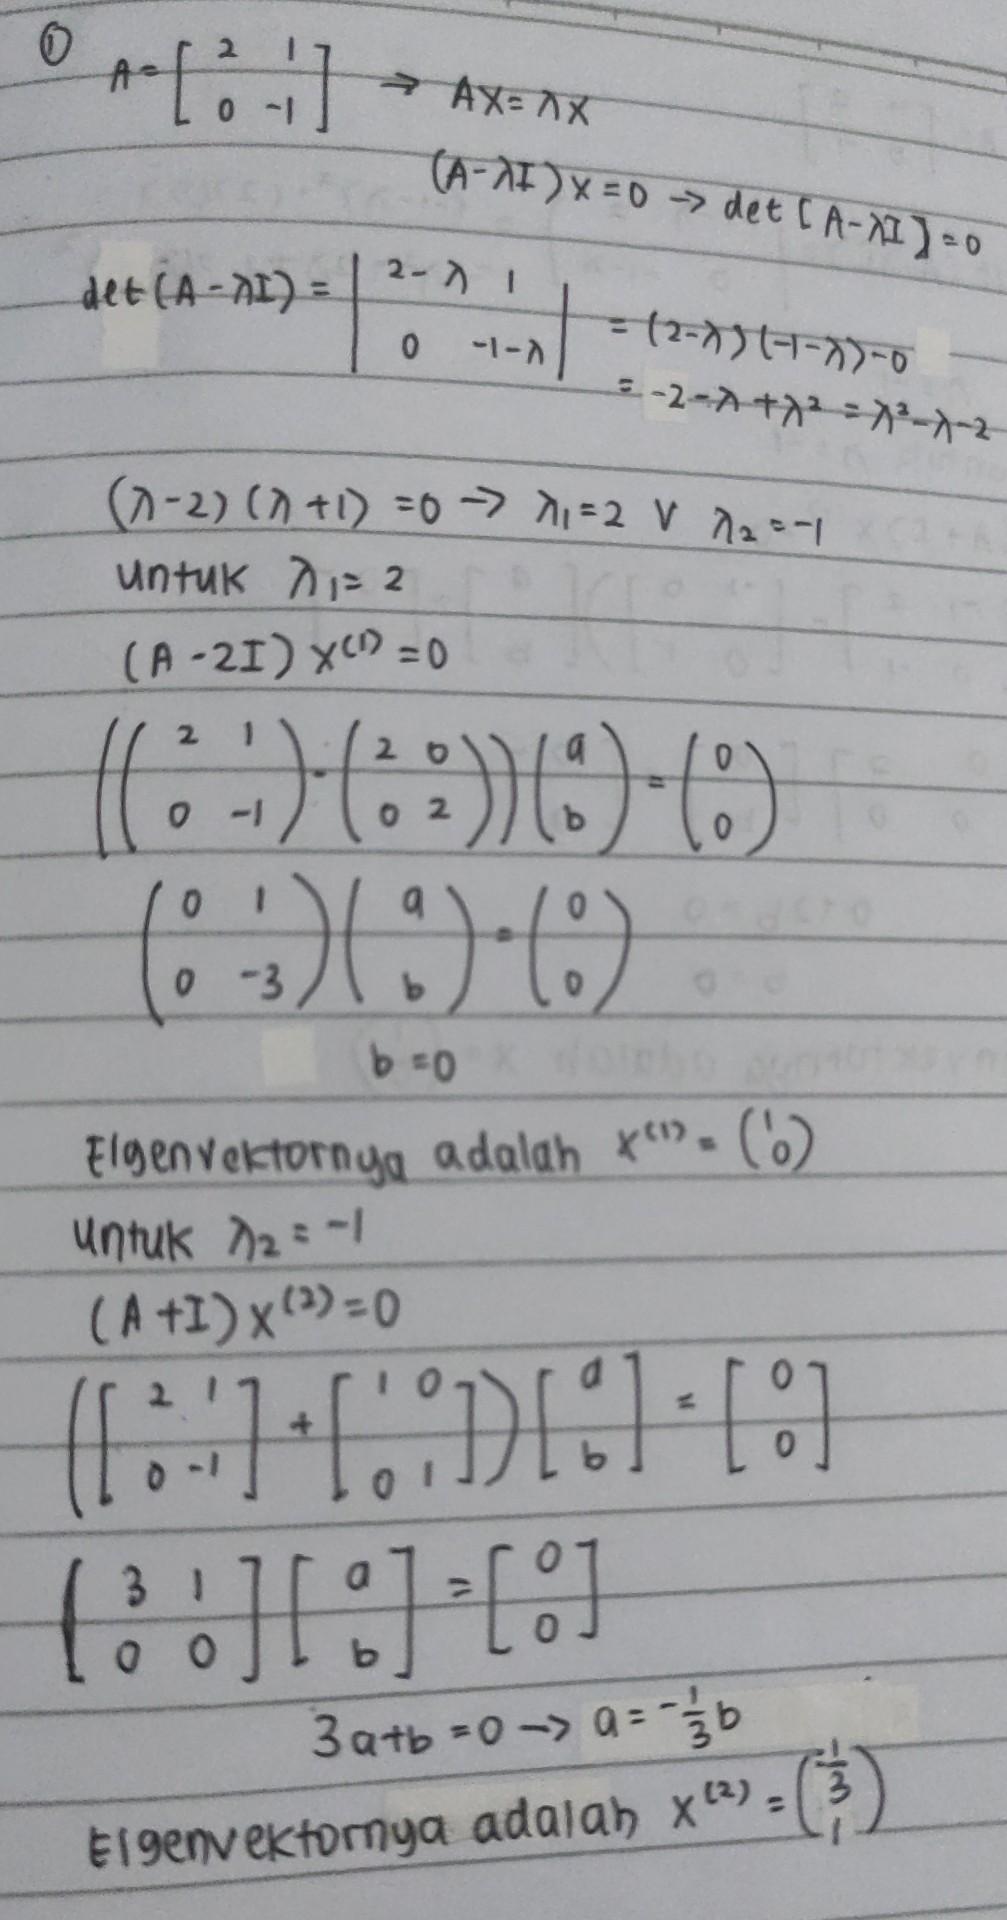 ① A = [ 2 1 ; 0 -1 ] → AX = λX
(A-λI)X = 0 → det [A-λI] = 0
det (A-λI) = | 2-λ 1 ; 0 -1-λ | = (2-λ)(-1-λ)-0
= -2-λ+λ² = λ²-λ-2
(λ-2)(λ+1) = 0 → λ₁ = 2 V λ₂ = -1
Untuk λ₁ = 2
(A-2I) X⁽¹⁾ = 0
(( 2 1 ; 0 -1 ) - ( 2 0 ; 0 2 )) ( a ; b ) = ( 0 ; 0 )
( 0 1 ; 0 -3 ) ( a ; b ) = ( 0 ; 0 )
b = 0
Eigenvektornya adalah X⁽¹⁾ = ( 1 ; 0 )
Untuk λ₂ = -1
(A+I) X⁽²⁾ = 0
([ 2 1 ; 0 -1 ] + [ 1 0 ; 0 1 ]) [ a ; b ] = [ 0 ; 0 ]
[ 3 1 ; 0 0 ] [ a ; b ] = [ 0 ; 0 ]
3a+b = 0 → a = -1/3 b
Eigenvektornya adalah X⁽²⁾ = ( -1/3 ; 1 )